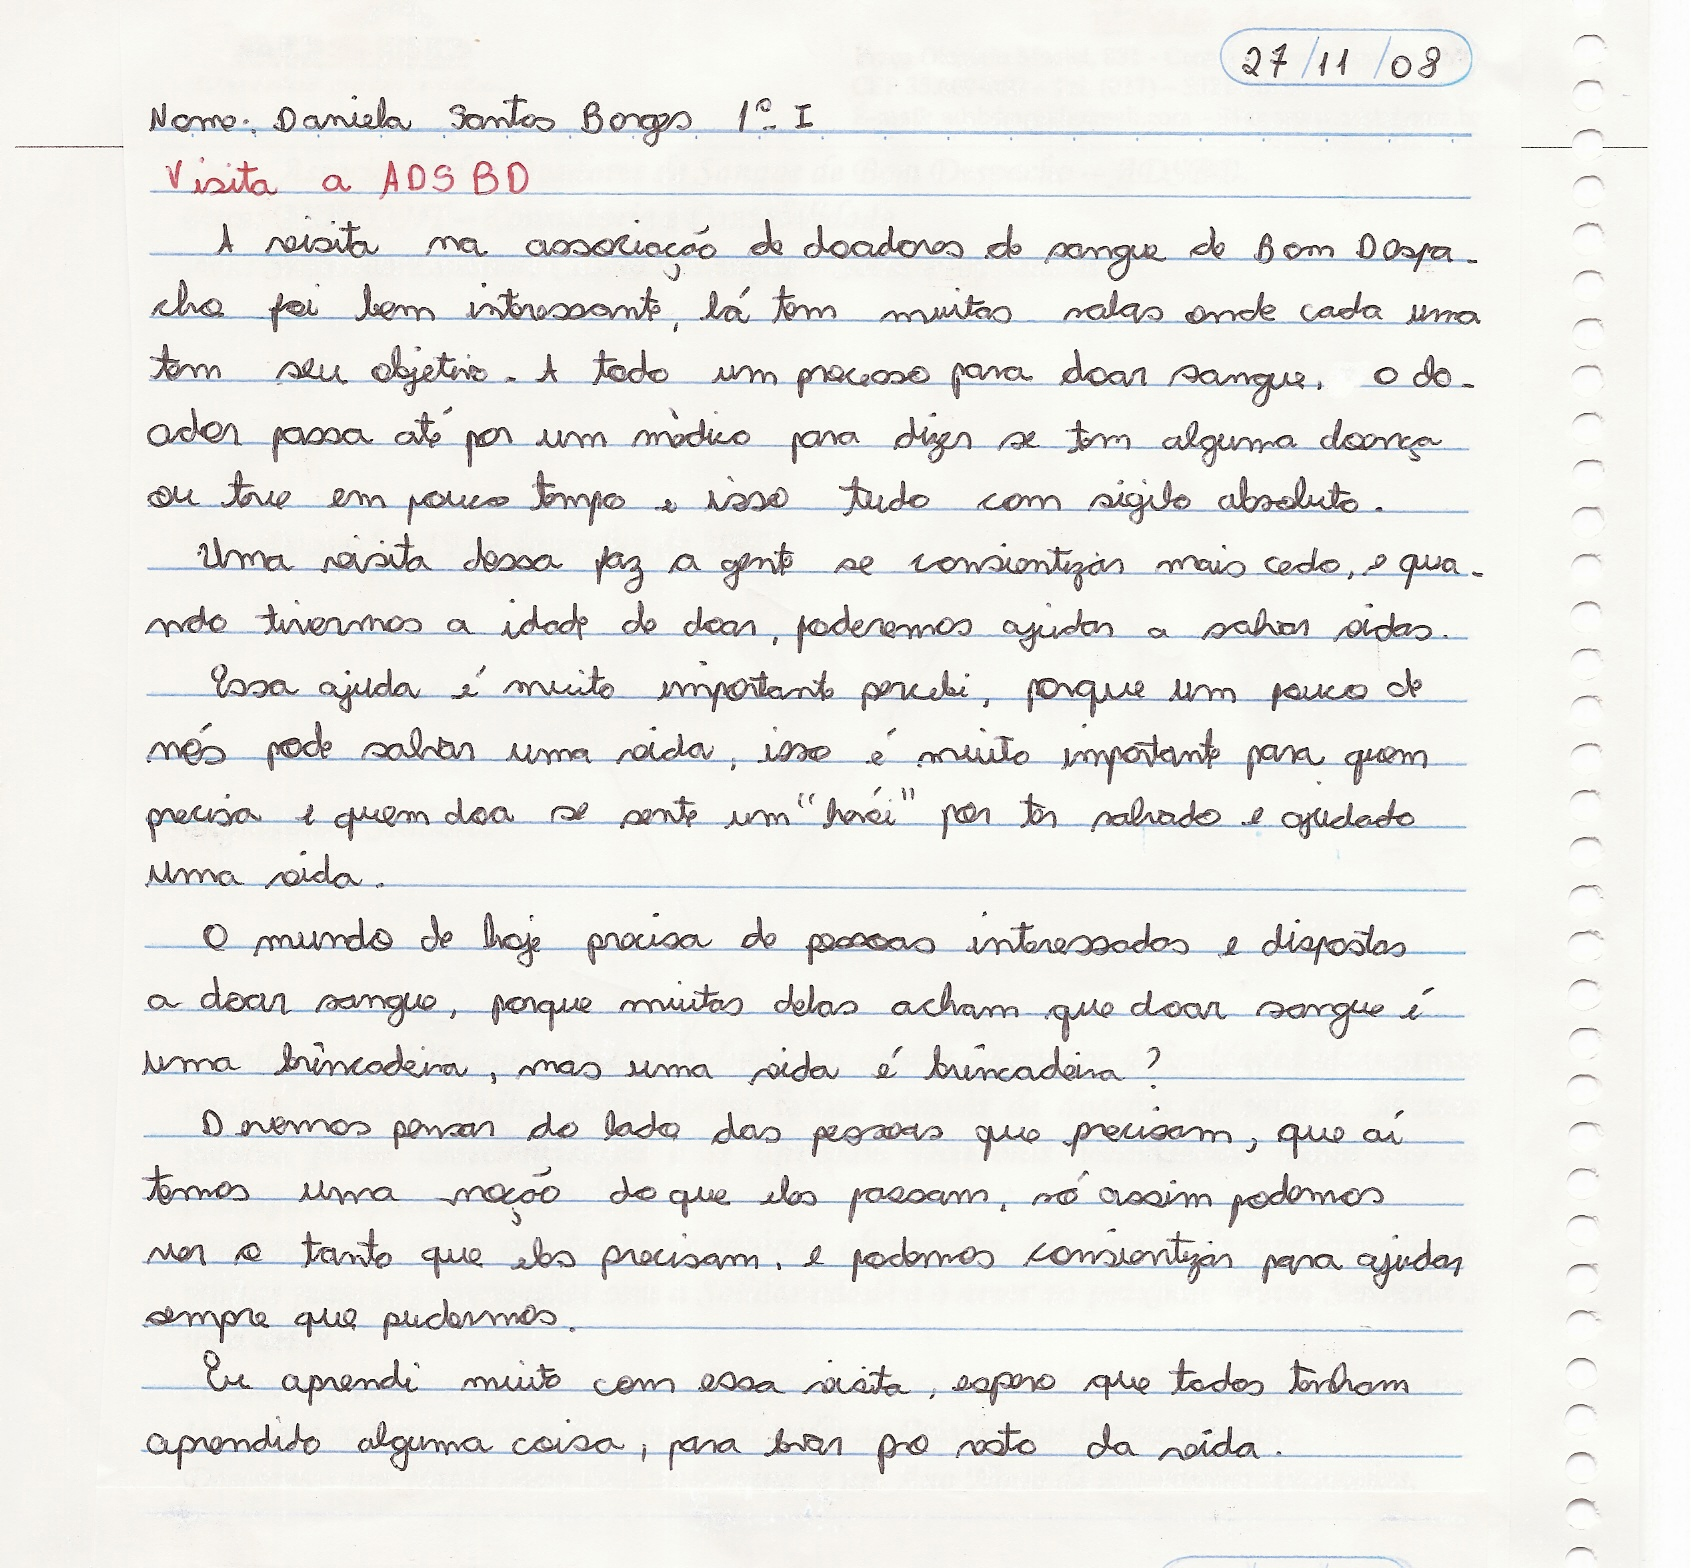 27/11/08
Nome: Daniela Santos Borges 1º I
Visita a ADSBD
A visita na associação de doadores de sangue de Bom Despa-
cho foi bem interessante, lá tem muitas salas onde cada uma
tem seu objetivo. A todo um processo para doar sangue, o do-
ador passa até por um mèdico para dizer se tem alguma doença
ou teve em pouco tempo e isso tudo com sigilo absoluto.
Uma visita dessa faz a gente se consientizar mais cedo, e qua-
ndo tivermos a idade de doar, poderemos ajudar a salvar vidas.
Essa ajuda é muito importante percebi, porque um pouco de
nós pode salvar uma vida, isso é muito importante para quem
precisa e quem doa se sente um "herói" por ter salvado e ajudado
uma vida.
O mundo de hoje precisa de pessoas interessadas e dispostas
a doar sangue, porque muitas delas acham que doar sangue é
uma brincadeira, mas uma vida é brincadeira?
Devemos pensar do lado das pessoas que precisam, que aí
temos uma noção do que elas passam, só assim podemos
ver o tanto que elas precisam, e podemos consientizar para ajudar
sempre que pudermos.
Eu aprendi muito com essa visita, espero que todos tenham
aprendido alguma coisa, para levar pro resto da vida.